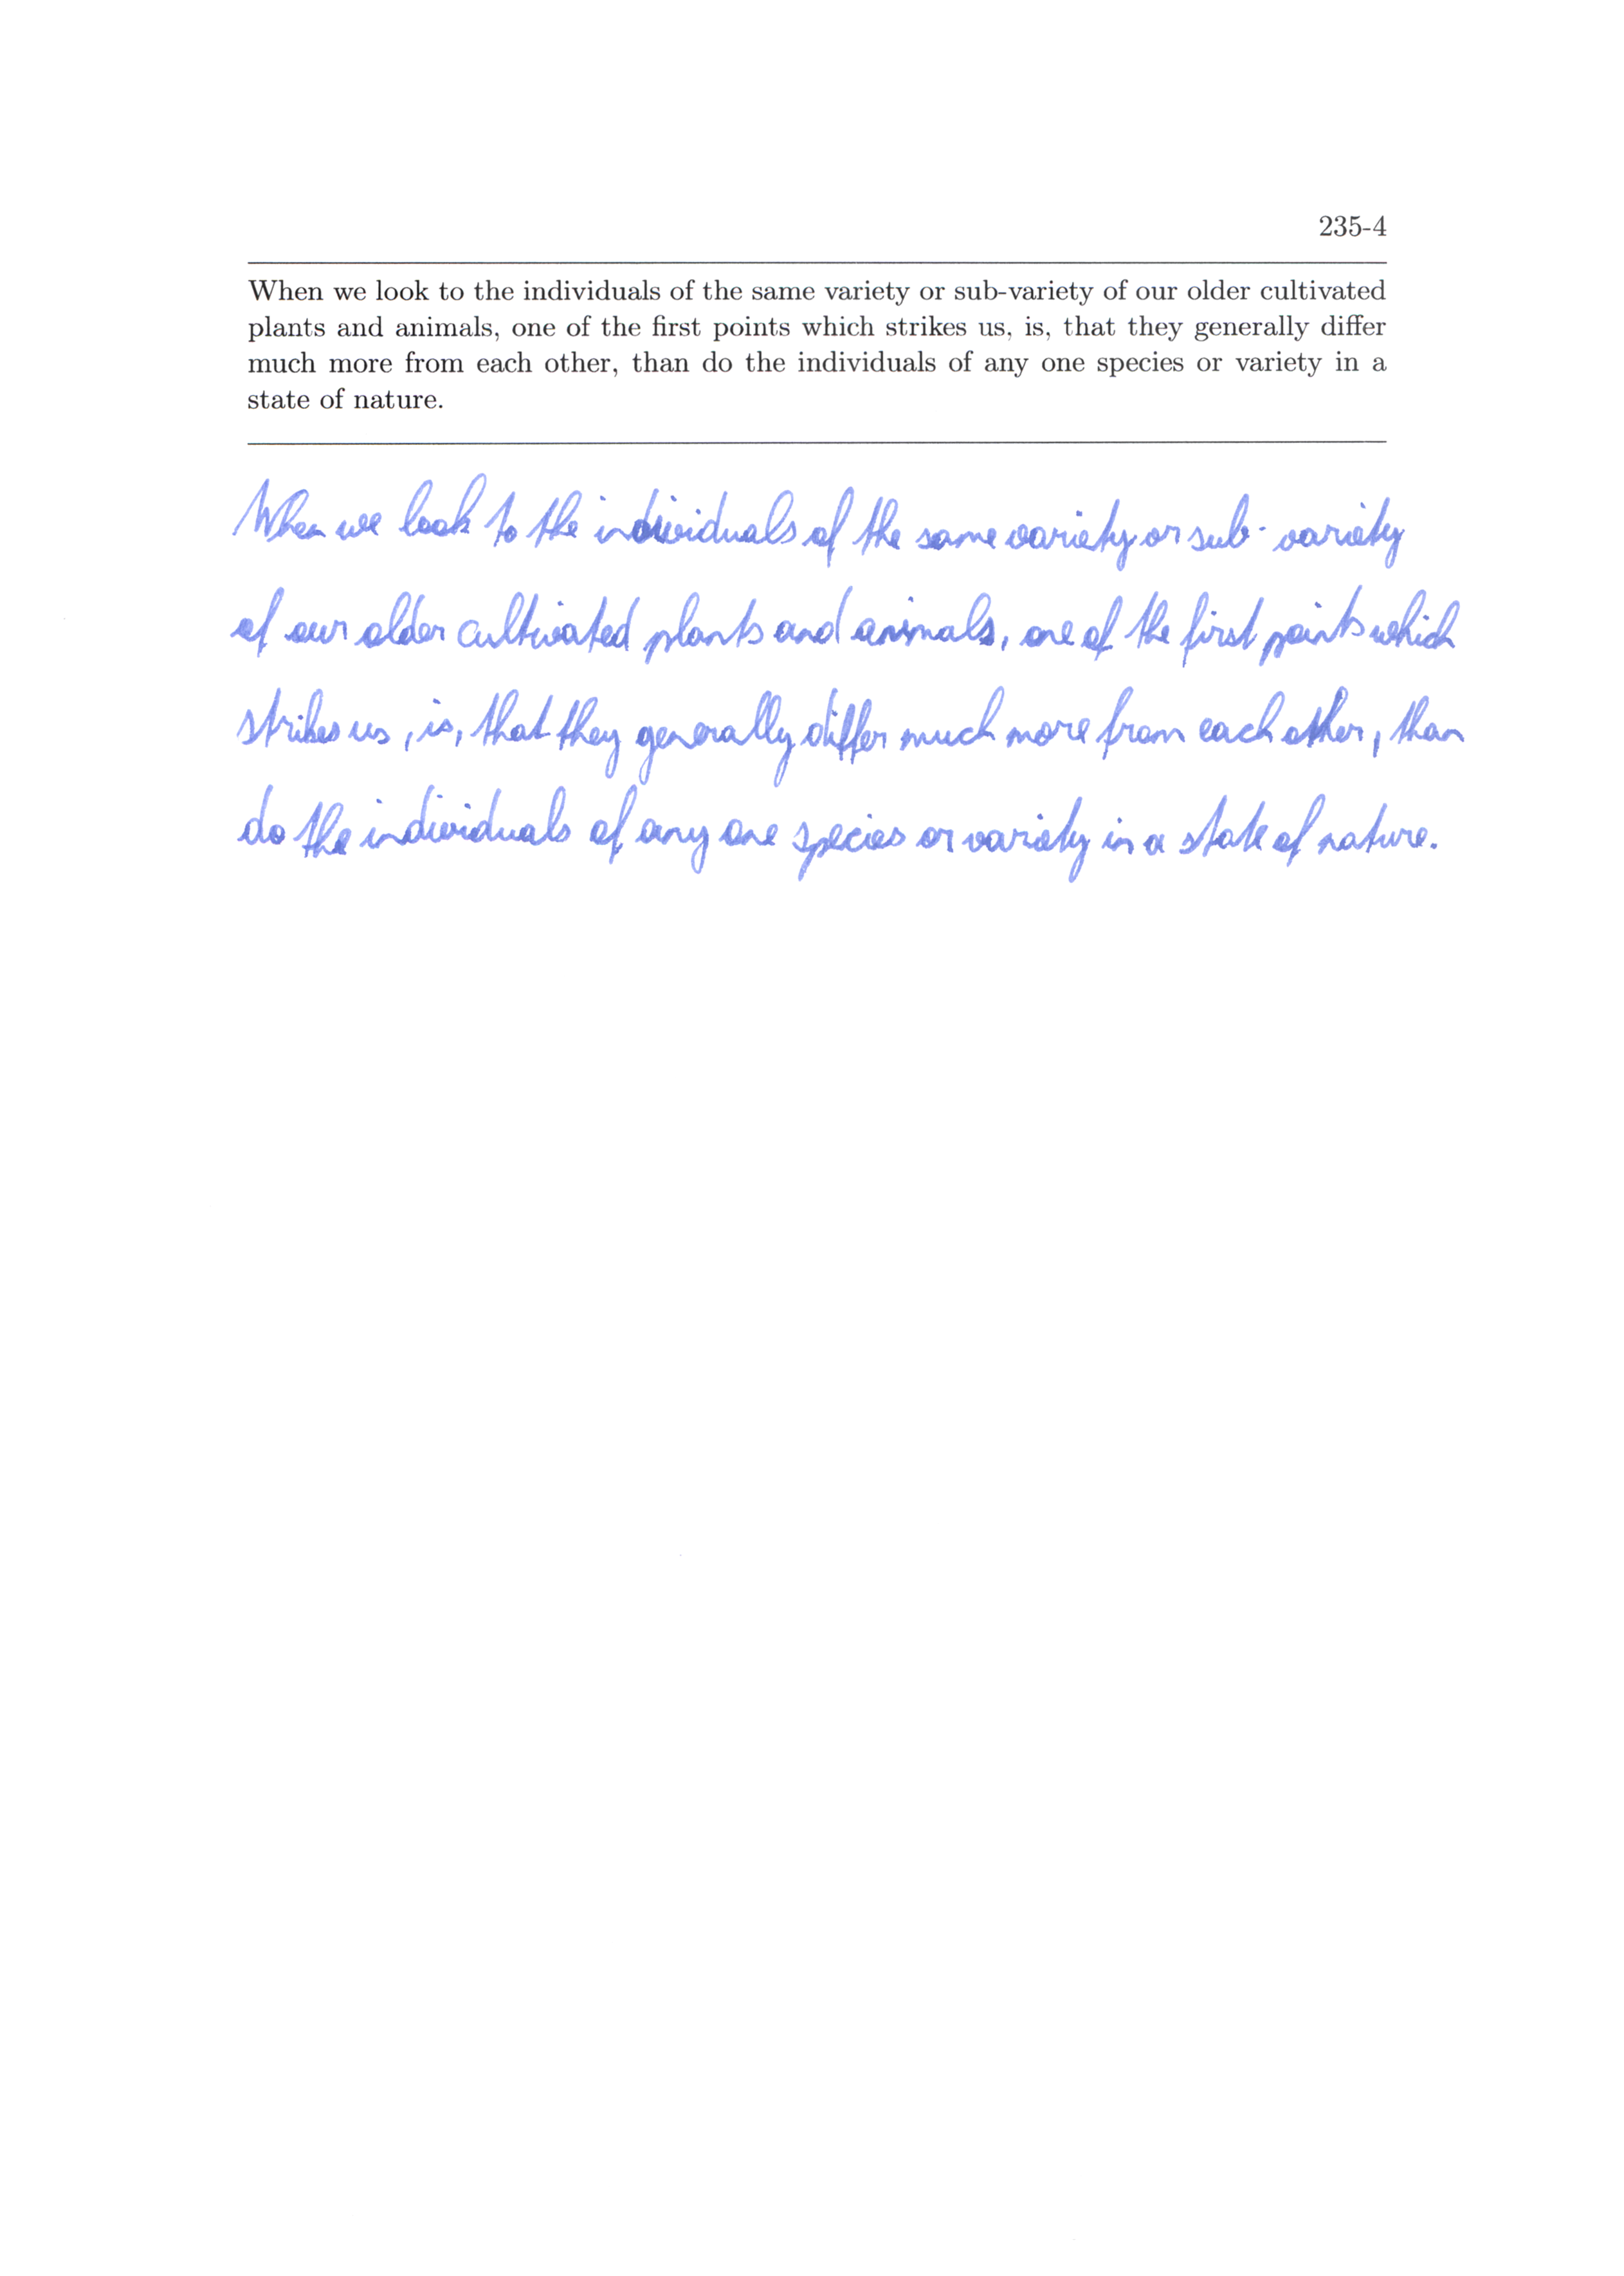 235-4
When we look to the individuals of the same variety or sub-variety of our older cultivated
plants and animals, one of the first points which strikes us, is, that they generally differ
much more from each other, than do the individuals of any one species or variety in a
state of nature.
When we look to the individuals of the same variety or sub-variety
of our older cultivated plants and animals, one of the first points which
strikes us, is, that they generally differ much more from each other, than
do the individuals of any one species or variety in a state of nature.